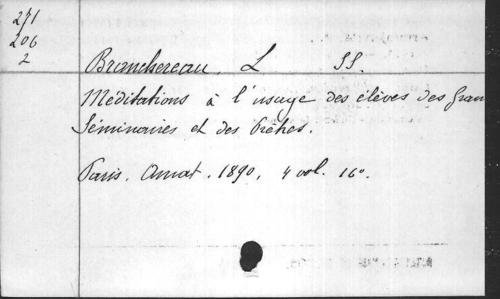 271
206
2
Branchereau, L SS.
Méditations à l'usage des élèves des Gran
Séminaires et des Prêtres.
Paris. Amat. 1890. 4 vol. 16°.